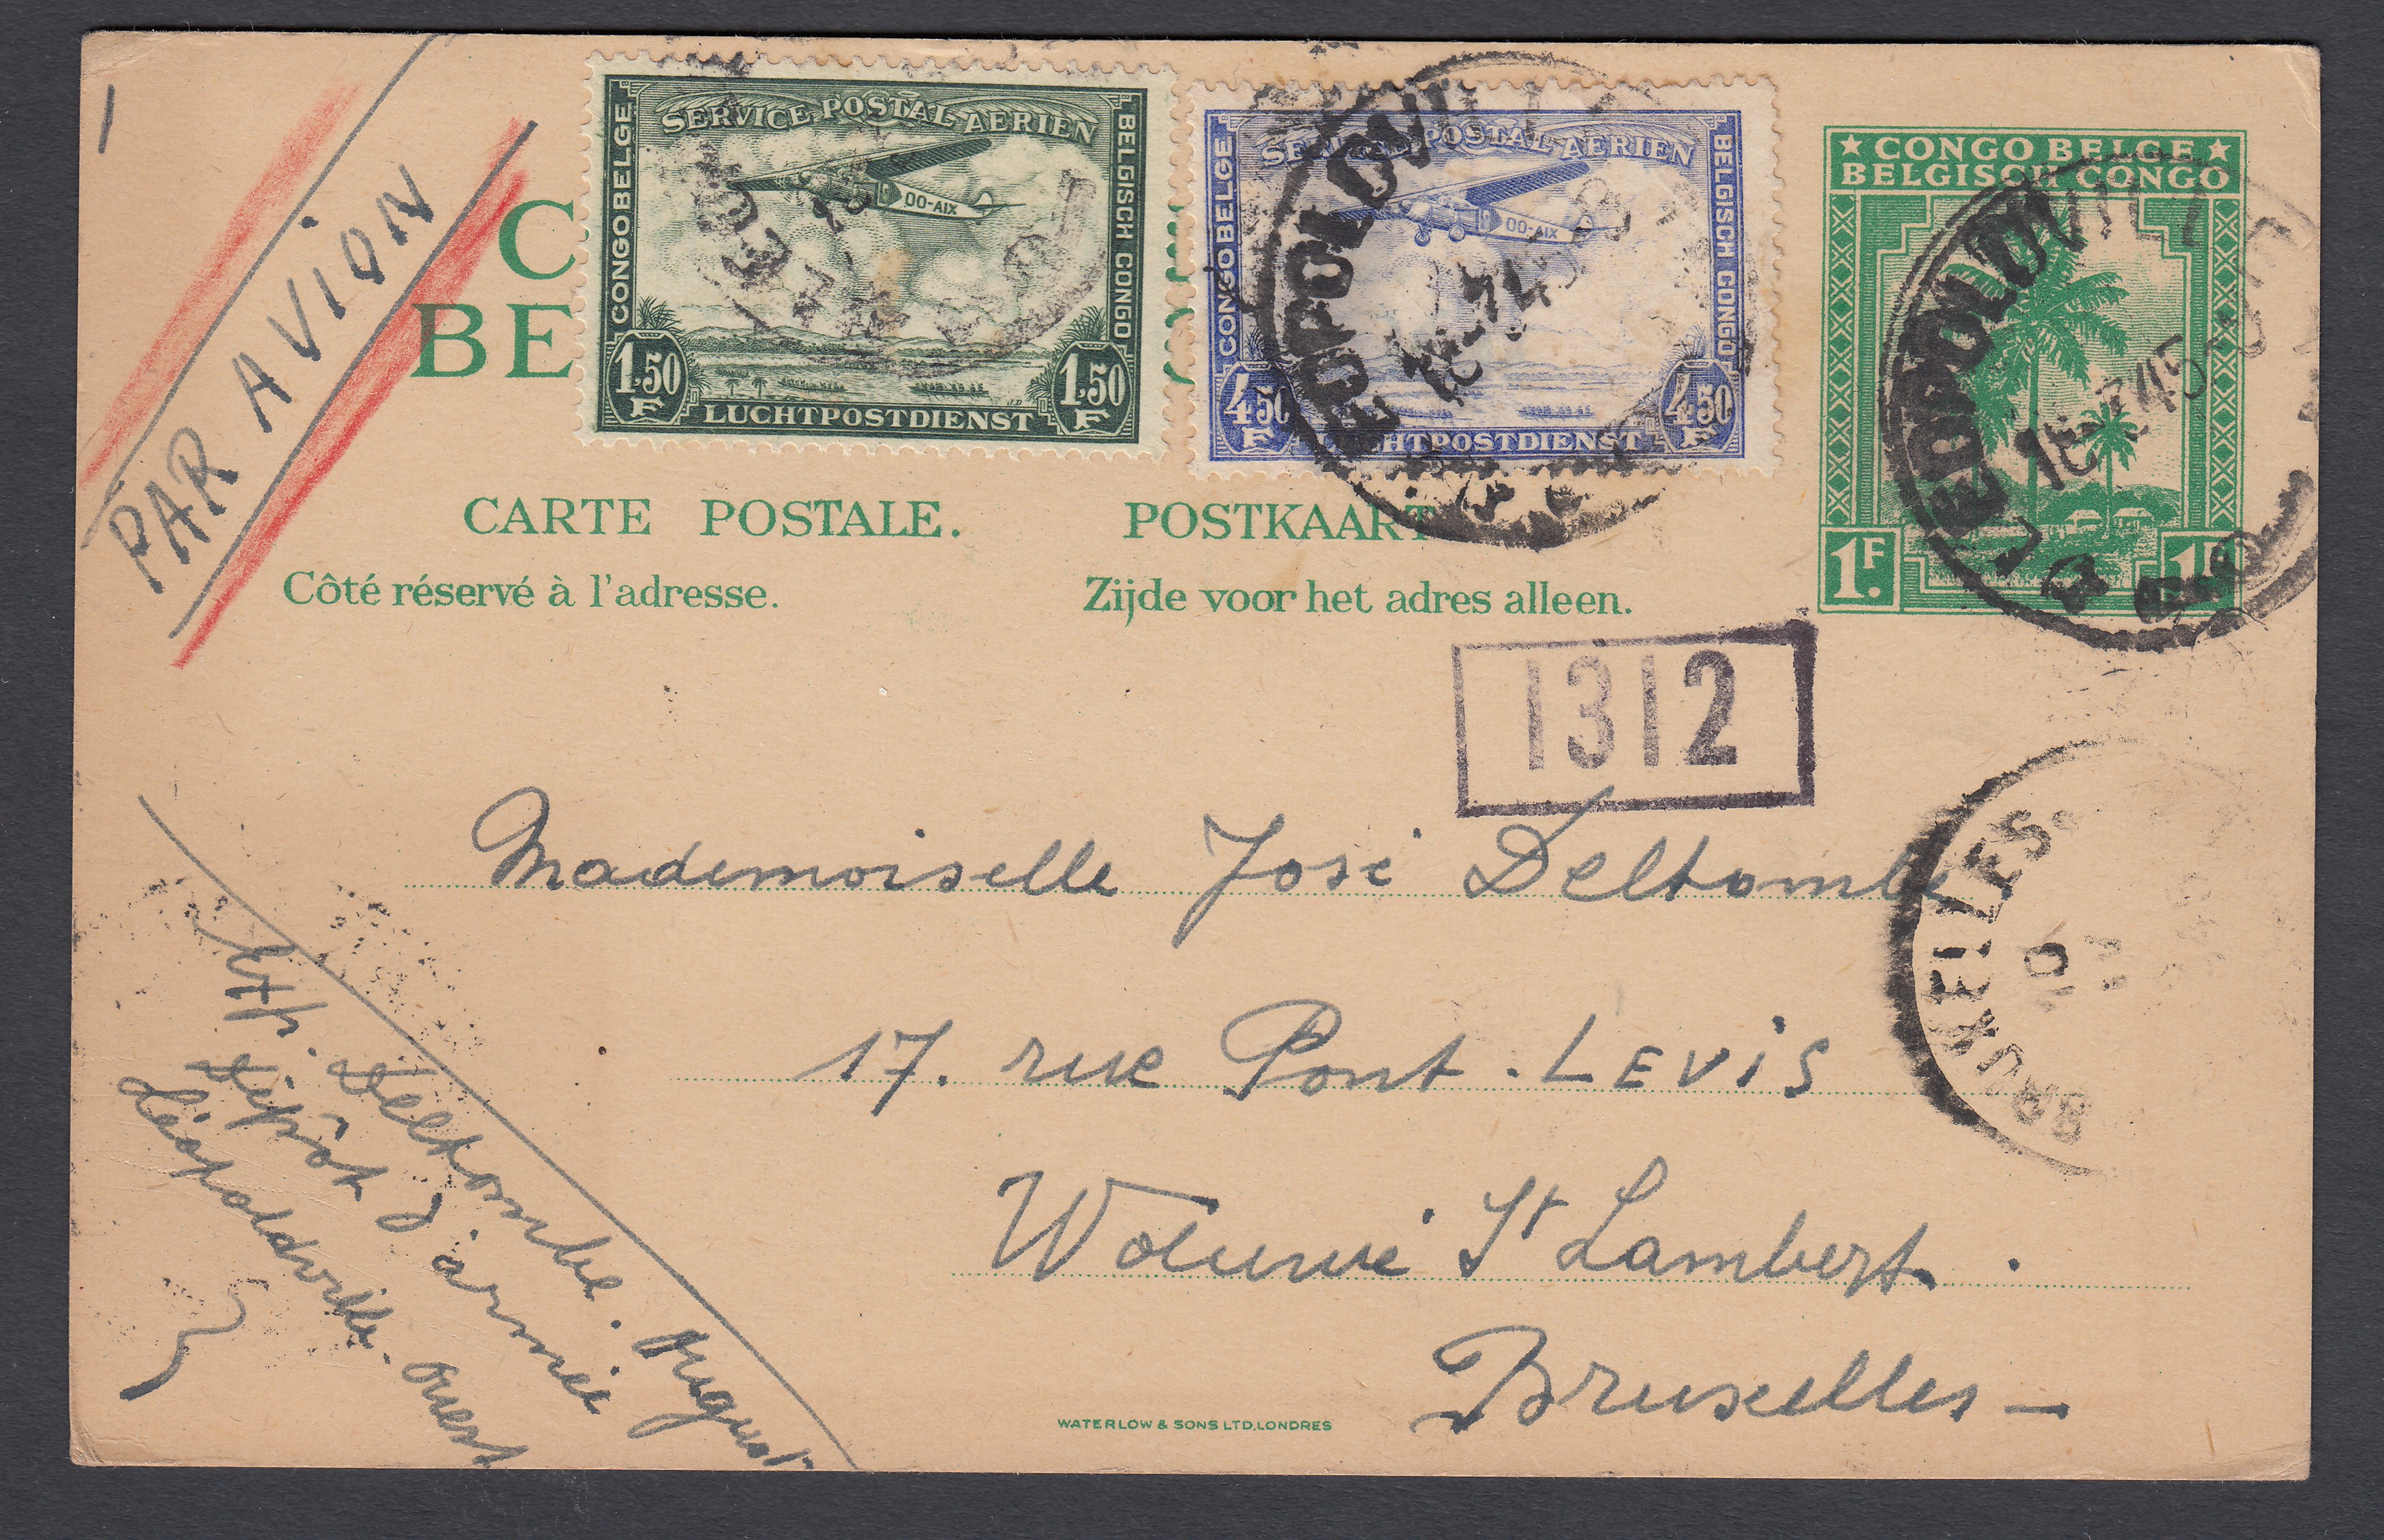 PAR AVION
C
BE
SERVICE POSTAL AERIEN
CONGO BELGE
BELGISCH CONGO
OO-AIX
1.50 F
1.50 F
LUCHTPOSTDIENST
SERVICE POSTAL AERIEN
CONGO BELGE
BELGISCH CONGO
OO-AIX
4.50 F
4.50 F
LUCHTPOSTDIENST
LEOPOLDVILLE
★ CONGO BELGE ★
BELGISCH CONGO
1F.
1F.
LEOPOLDVILLE
CARTE POSTALE.
POSTKAART
Côté réservé à l'adresse.
Zijde voor het adres alleen.
1312
BRUXELLES
Mademoiselle José Deltombe
17. rue Pont. LEViS
Woluwé St Lambert.
Bruxelles —
Exp. Deltombe. August
Dépôt d'armée
Léopoldville. Ouest
WATERLOW & SONS LTD, LONDRES